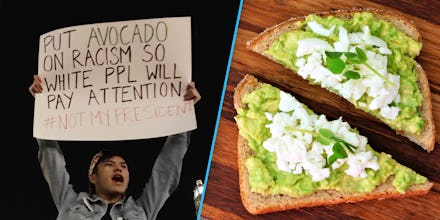 PUT AVOCADO
ON RACISM SO
WHITE PPL WILL
PAY ATTENTION
#NOT MY PRESIDENT